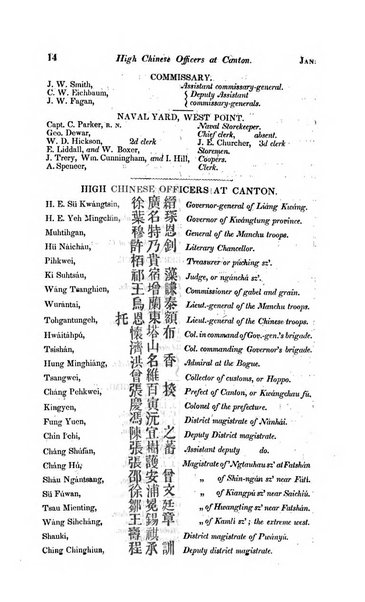 14 High Chinese Officers at Canton. JAN.
COMMISSARY.
J. W. Smith, Assistant commissary-general.
C. W. Eichbaum, { Deputy Assistant
J. W. Fagan, { commissary-generals.
NAVAL YARD, WEST POINT.
Capt. C. Parker, R. N. Naval Storekeeper.
Geo. Dewar, Chief clerk, absent.
W. D. Hickson, 2d clerk J. E. Churcher, 3d clerk
E. Liddall, and W. Boxer, Storemen.
J. Trery, Wm. Cunningham, and I. Hill, Coopers.
A. Spencer, Clerk.
HIGH CHINESE OFFICERS AT CANTON.
H. E. Sü Kwángtsin, 徐廣縉 Governor-general of Liáng Kwáng.
H. E. Yeh Mingchin, 葉名琛 Governor of Kwángtung province.
Muhtihgan, 穆特恩 General of the Manchu troops.
Hü Náicháu, 許乃釗 Literary Chancellor.
Pihkwei, 栢貴 Treasurer or púching sz'.
Ki Suhtsáu, 祁宿藻 Judge, or ngánchá sz'.
Wáng Tsanghien, 王增謙 Commissioner of gabel and grain.
Wurántai, 烏蘭泰 Lieut.-general of the Manchu troops.
Tohgantungeh, 托恩東額 Lieut.-general of the Chinese troops.
Hwáitáhpú, 懷塔布 Col. in command of Gov.-gen.'s brigade.
Tsishán, 濟山 Col. commanding Governor's brigade.
Hung Minghiáng, 洪名香 Admiral at the Bogue.
Tsangwei, 曾維 Collector of customs, or Hoppo.
Cháng Pehkwei, 張百揆 Prefect of Canton, or Kwángchau fu.
Kingyen, 慶寅 Colonel of the prefecture.
Fung Yuen, 馮沅 District magistrate of Nánhái.
Chin I'chí, 陳宜之 Deputy District magistrate.
Cháng Shúfan, 張樹蕃 Assistant deputy do.
Cháng Hú, 張護 Magistrate of Ngtauhau sz' at Fatshán
Sháu Ngántsang, 邵安曾 „ of Shin-ngán sz' near Fátí.
Sü Fúwan, 徐浦文 „ of Kiangpú sz' near Saichiú.
Tsau Mienting, 鄒冕廷 „ of Hwangting sz' near Fatshán
Wáng Sihcháng, 王錫章 „ of Kamlí sz'; the extreme west.
Sháukí, 壽祺 District magistrate of Pwányü.
Ching Chinghiun, 程承訓 Deputy district magistrate.